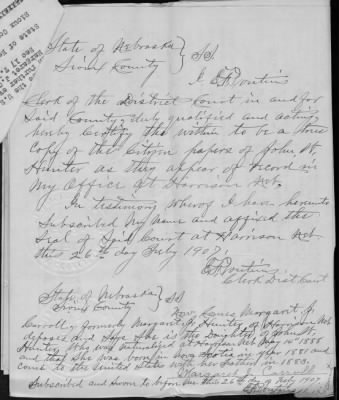 State of Nebraska } SS
Sioux County
I
Clerk of the District Court in and for
Said County, duly qualified and acting,
hereby Certify the within to be a true
Copy of the Citizen papers of John W.
Hunter as they appear of record in
My Office at Harrison Neb.
In testimony whereof I have hereunto
Subscribed My name and affixed the
Seal of Said Court at Harrison Neb
this 26th day July 1907.
Clerk Dist Court
State of Nebraska } SS
Sioux County
Now Comes Margaret J.
Carroll, formerly Margaret J. Hunter of Harrison Neb
deposes and Says She is the Daughter of John W.
Hunter Who was Naturalized at Harrison Neb May 14th 1888
and that She was born in Nova Scotia in year 1881 and
come to the United States with her Father in 1883.
Margaret J.
Subscribed and Sworn to before me this 26th day of July 1907